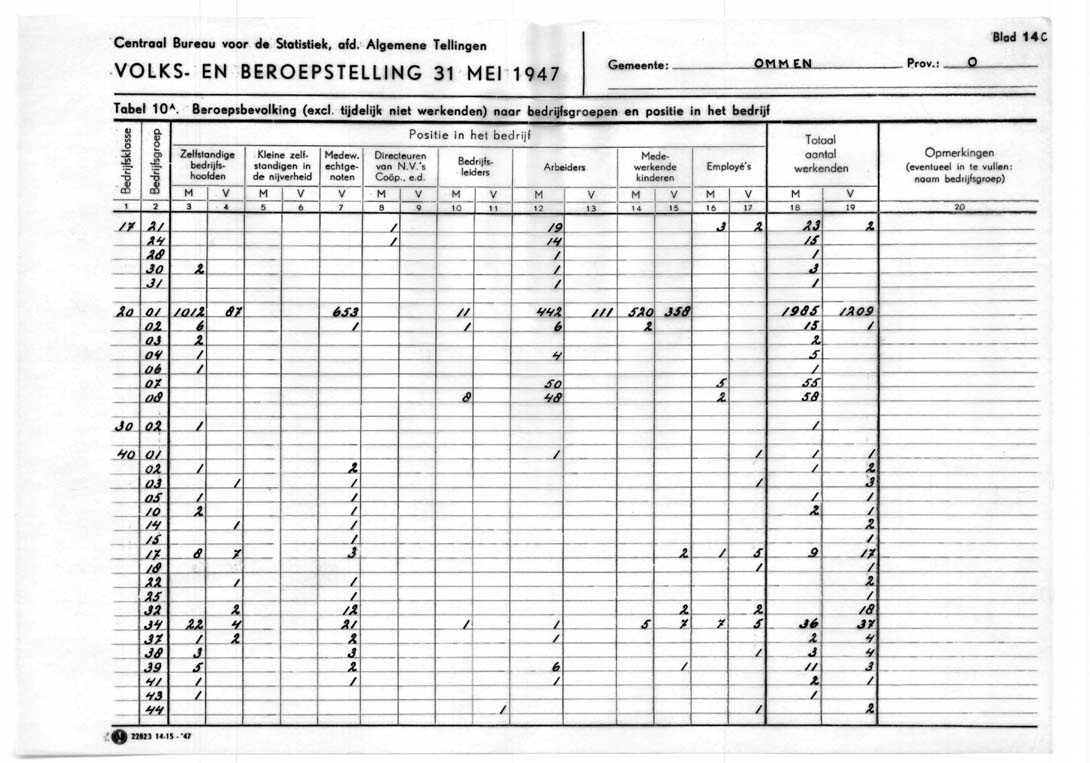 Blad 14C
Centraal Bureau voor de Statistiek, afd. Algemene Tellingen
VOLKS- EN BEROEPSTELLING 31 MEI 1947
Gemeente: OMMEN Prov.: O
Tabel 10A. Beroepsbevolking (excl. tijdelijk niet werkenden) naar bedrijfsgroepen en positie in het bedrijf
Bedrijfsklasse
Bedrijfsgroep
Positie in het bedrijf
Zelfstandige bedrijfs-hoofden
Kleine zelf-standigen in de nijverheid
Medew. echtge-noten
Directeuren van N.V.'s Coöp., e.d.
Bedrijfs-leiders
Arbeiders
Mede-werkende kinderen
Employé's
Totaal aantal werkenden
Opmerkingen (eventueel in te vullen: naam bedrijfsgroep)
M V M V V M V M V M V M V M V M V
1 2 3 4 5 6 7 8 9 10 11 12 13 14 15 16 17 18 19 20
17 21 1 19 3 2 23 2
24 1 14 15
28 1 1
30 2 1 3
31 1 1
20 01 1012 87 653 11 442 111 520 358 1985 1209
02 6 1 1 6 2 15 1
03 2 2
04 1 4 5
06 1 1
07 50 5 55
08 8 48 2 58
30 02 1 1
40 01 1 1 1 1
02 1 2 1 2
03 1 1 1 3
05 1 1 1 1
10 2 1 2 1
14 1 1 2
15 1 1
17 8 7 3 2 1 5 9 17
18 1 1
22 1 1 2
25 1 1
32 2 12 2 2 18
34 22 4 21 1 1 5 7 7 5 36 37
37 1 2 2 1 2 4
38 3 3 1 3 4
39 5 2 6 1 11 3
41 1 1 1 2 1
43 1 1
44 1 1 2
22823 14-15-'47